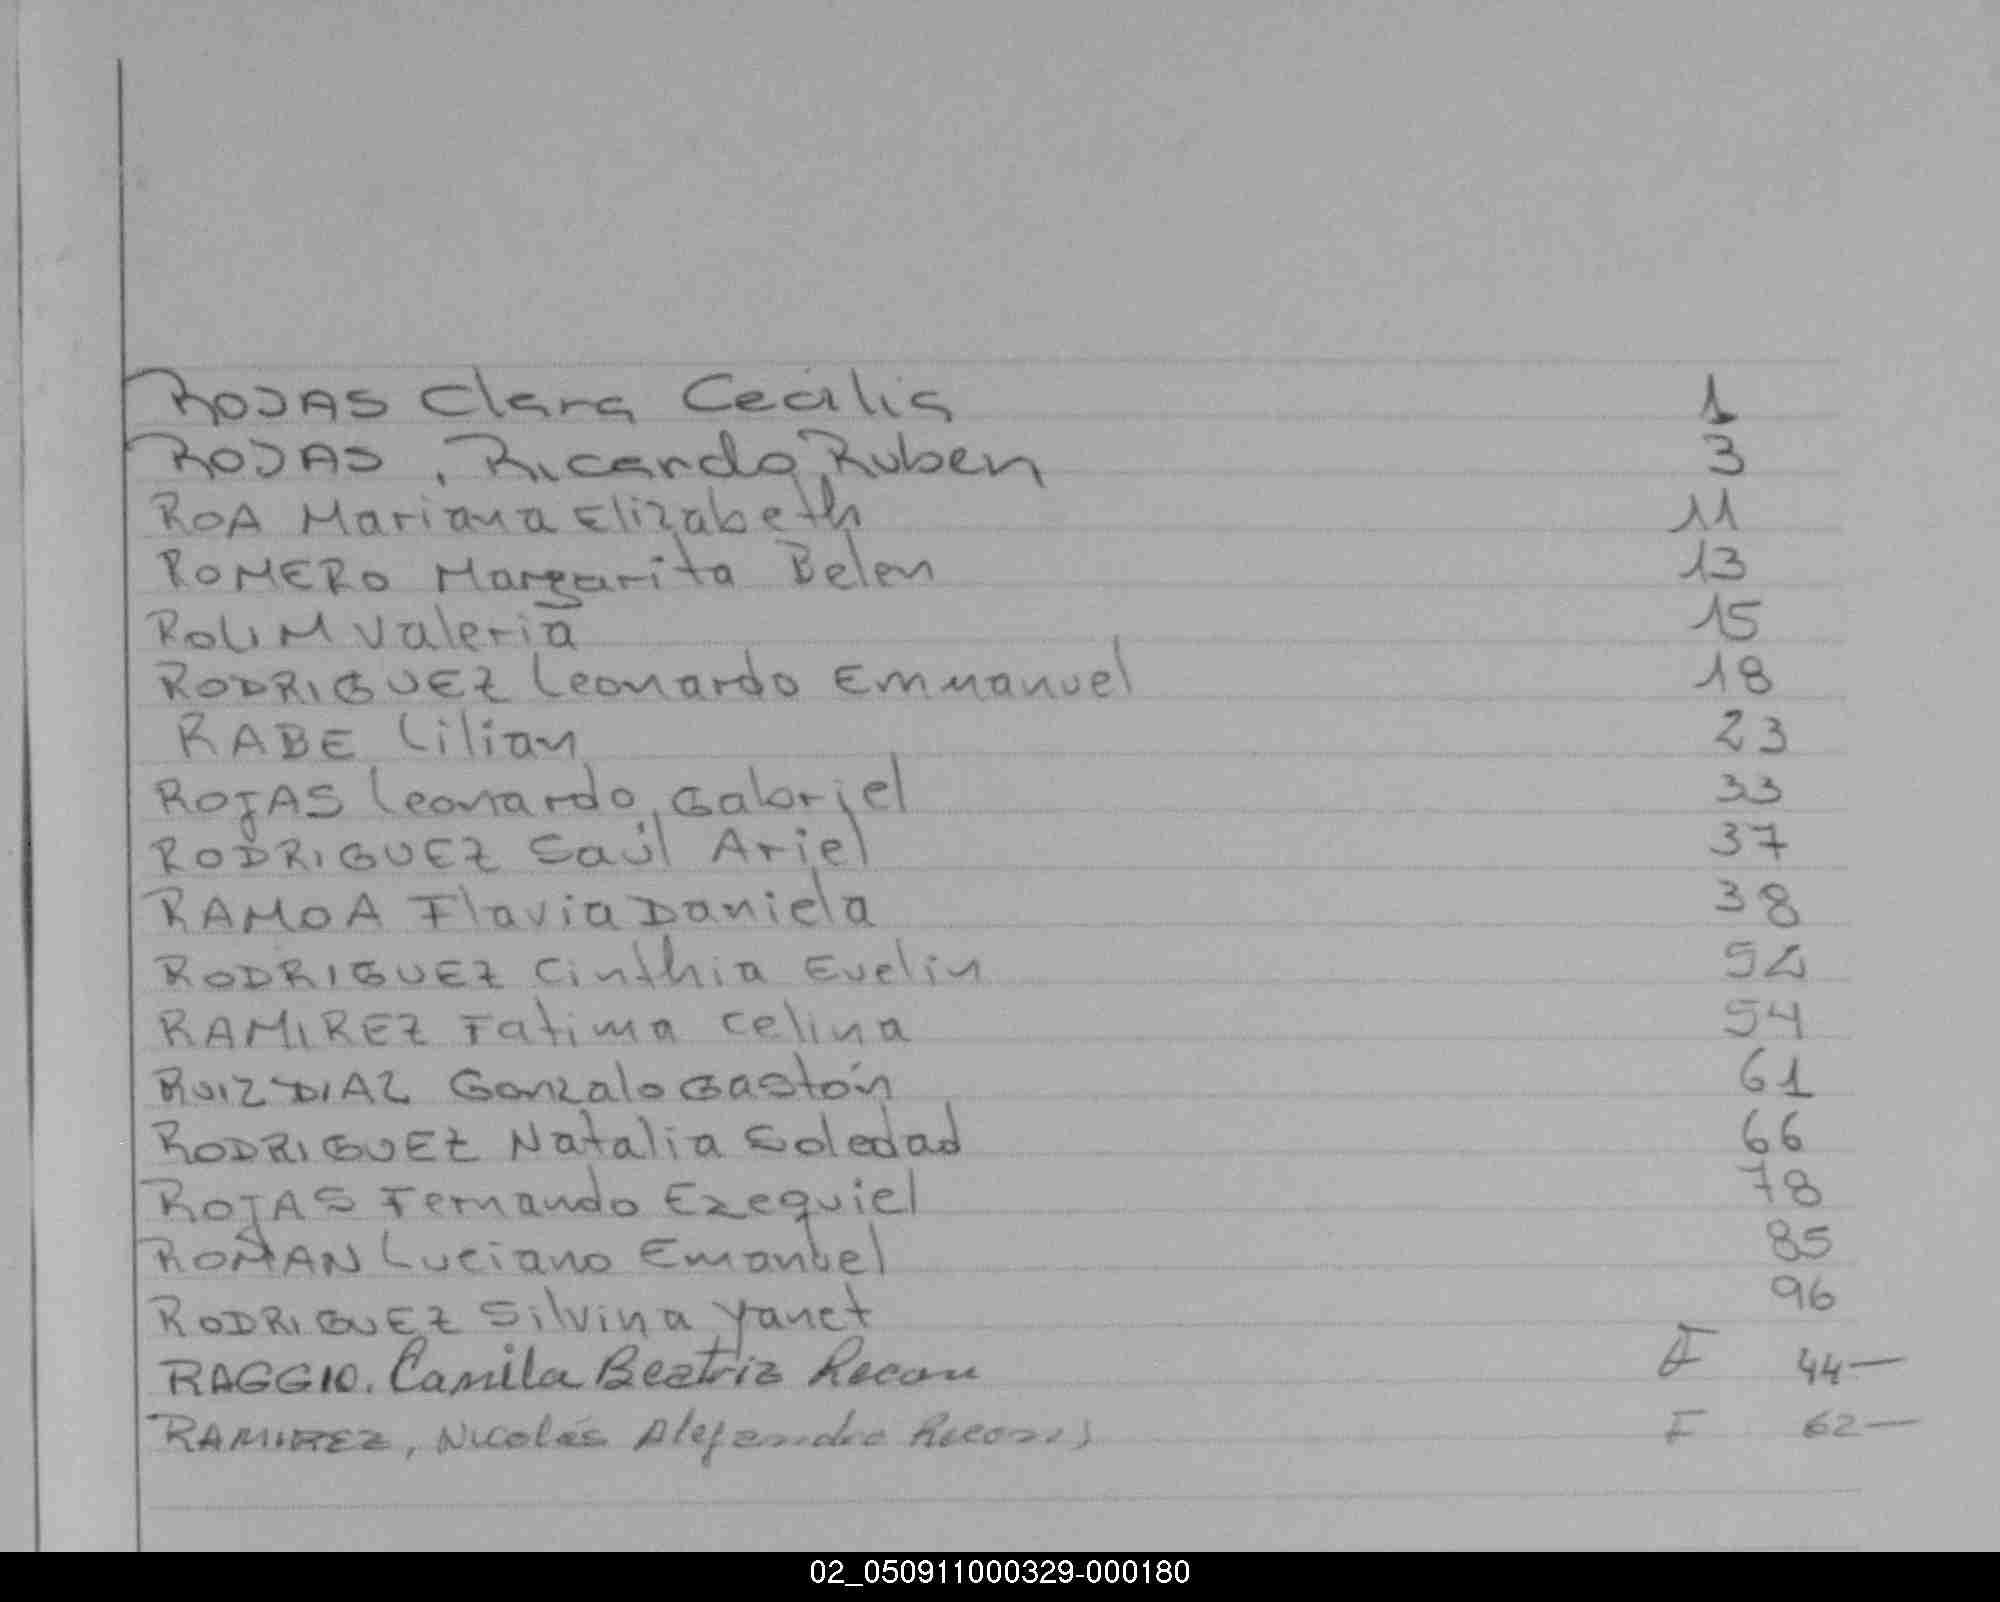 ROJAS Clara Cecilia 1
ROJAS, Ricardo Ruben 3
ROA Mariana Elizabeth 11
ROMERO Margarita Belen 13
ROLIM Valeria 15
RODRIGUEZ Leonardo Emmanuel 18
RABE Lilian 23
ROJAS Leonardo Gabriel 33
RODRIGUEZ Saúl Ariel 37
RAMOA Flavia Daniela 38
RODRIGUEZ Cinthia Evelin 52
RAMIREZ Fatima Celina 54
RUIZ DIAZ Gonzalo Gastón 61
RODRIGUEZ Natalia Soledad 66
ROJAS Fernando Ezequiel 78
ROMAN Luciano Emanuel 85
RODRIGUEZ Silvina Yanet 96
RAGGIO. Camila Beatriz 44—
RAMIREZ, Nicolás Alejandro 62—
02_050911000329-000180